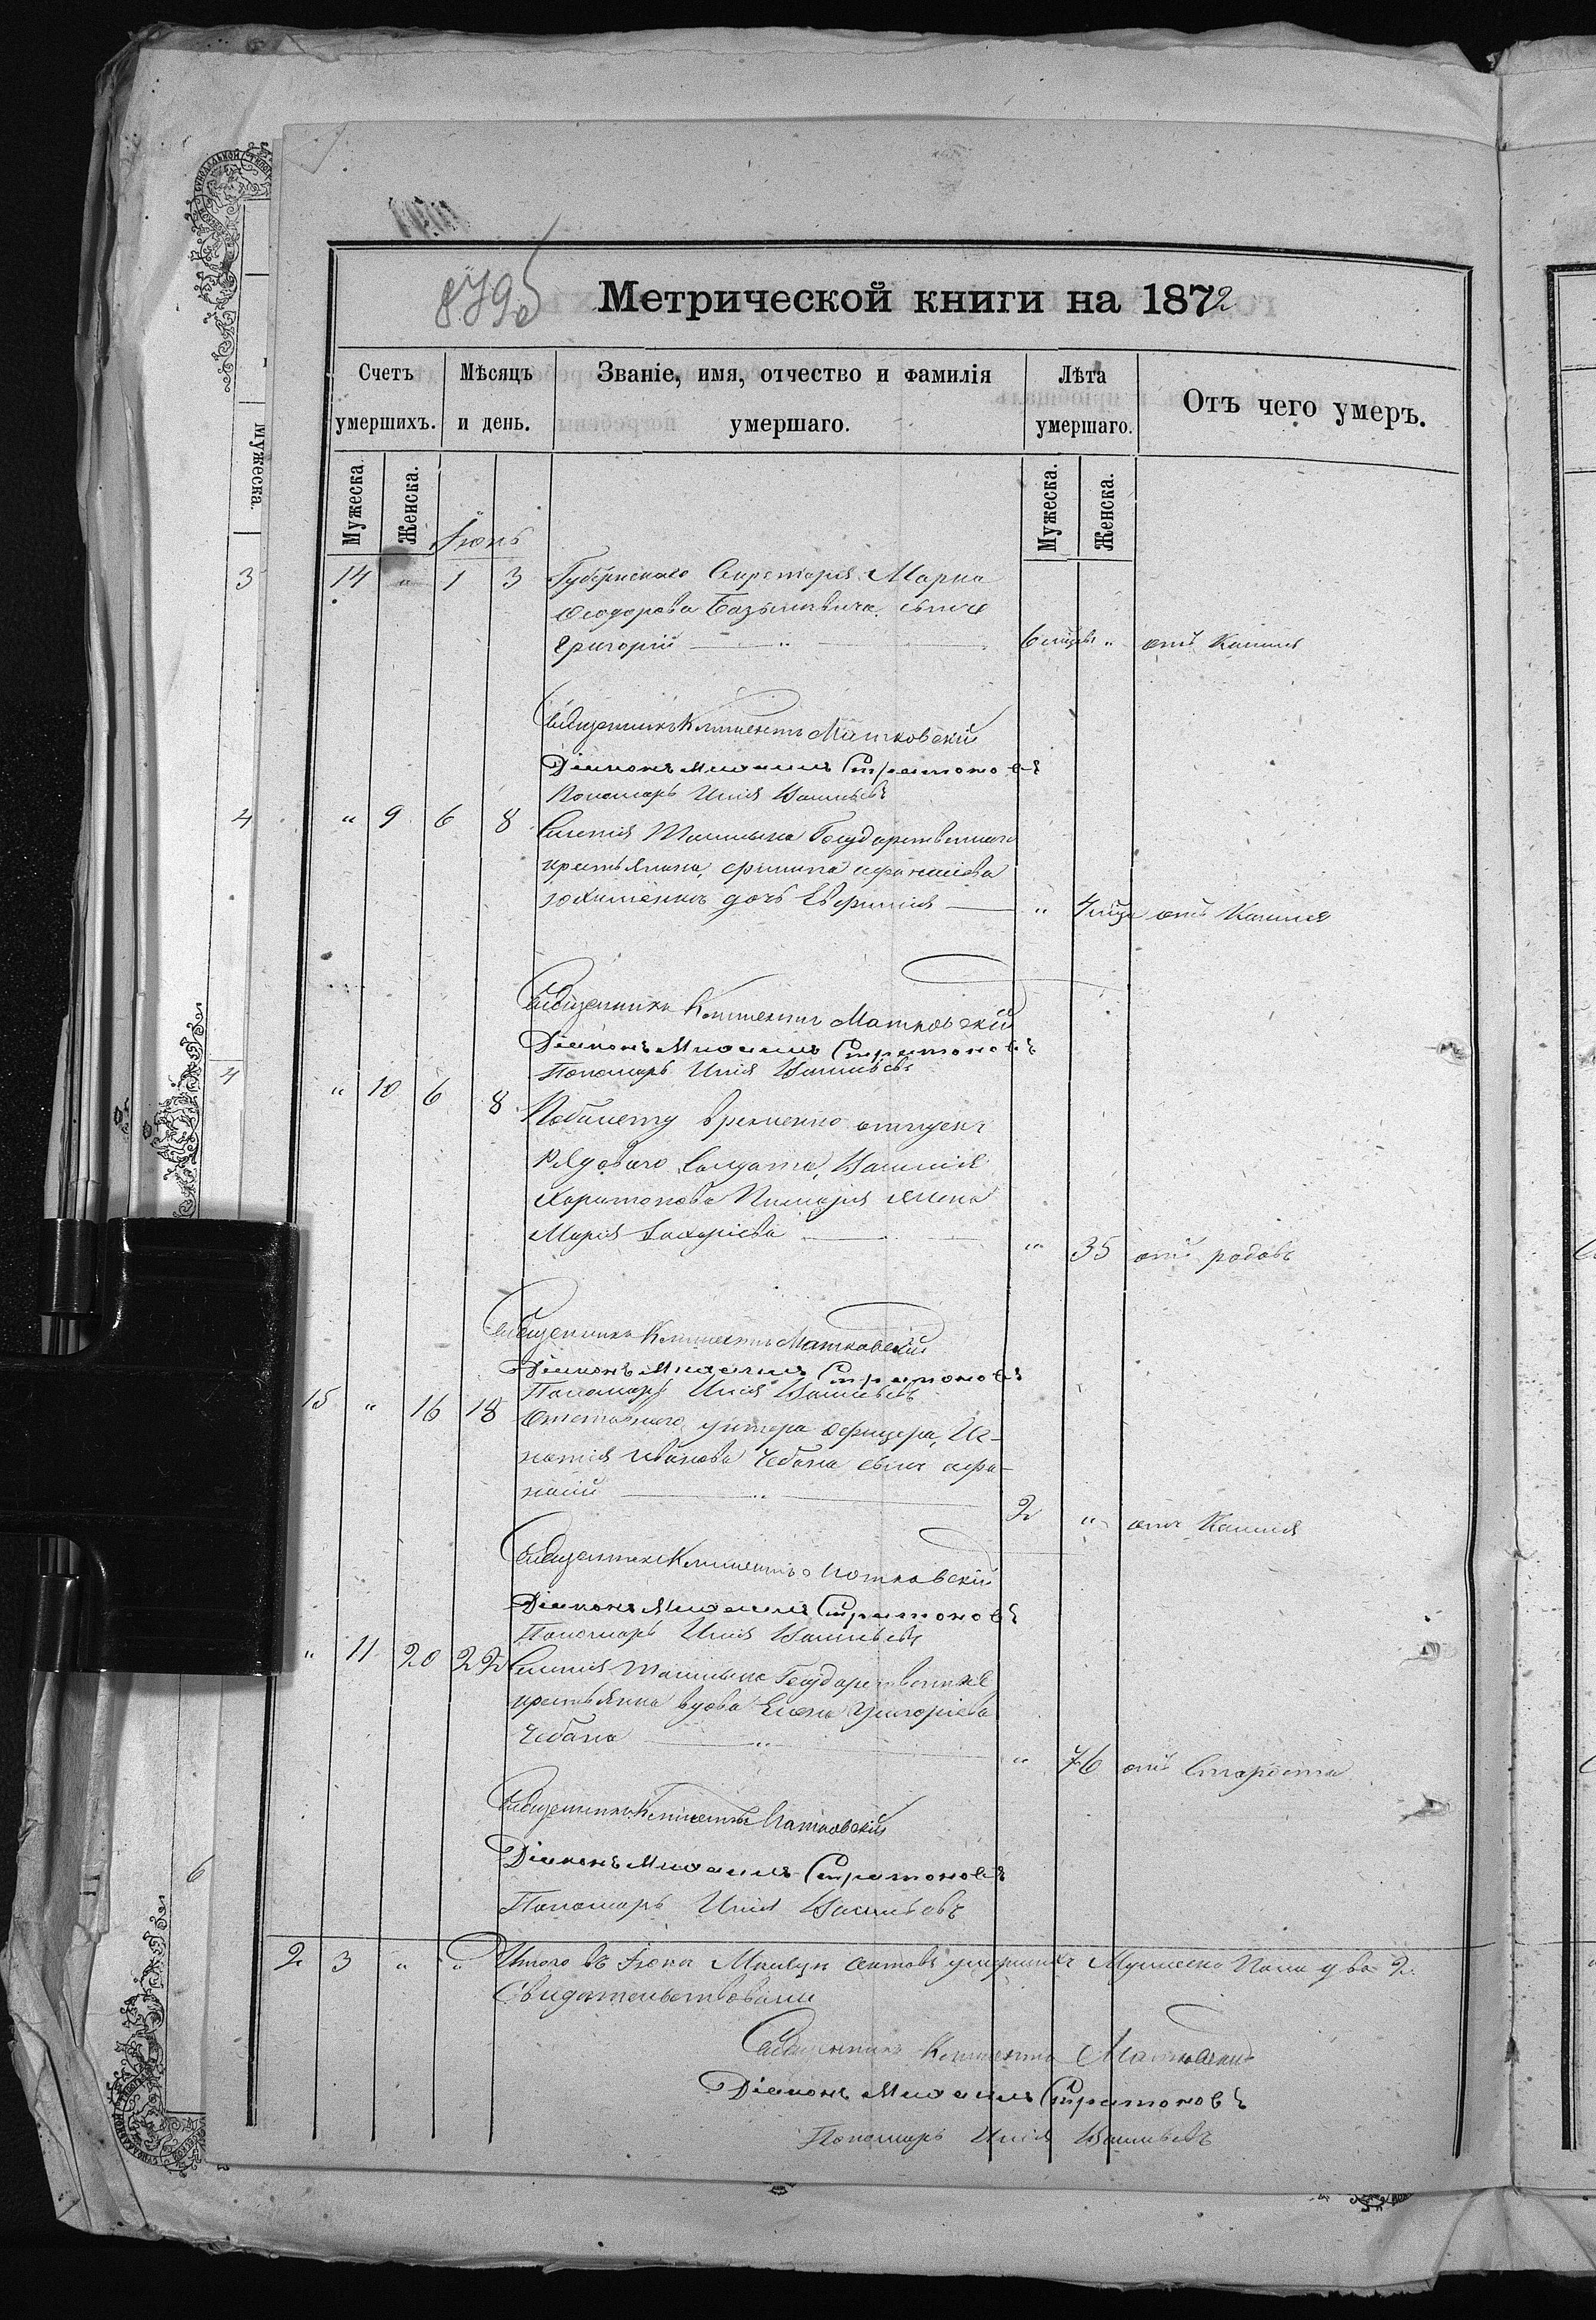 879об
Метрической книги на 1872
Счетъ умершихъ.
Мѣсяцъ и день.
Званіе, имя, отчество и фамилія умершаго.
Лѣта умершаго.
Отъ чего умеръ.
Мужеска.
Женска.
Мужеска.
Женска.
Іюнь
14 " 1 3 Губернскаго Секретаря Марка
Феодорова сынъ
Григорій — " — 6 мцвъ " отъ Кашля
Священникъ Климентъ Матковскій
Діаконъ Михаилъ Стратоновъ
Пономарь Илія Васильевъ
" 9 6 8 Селенія Ташлыка Государственнаго
крестьянина
дочь Евфимія — " 4 мца отъ Кашля
Священникъ Климентъ Матковскій
Діаконъ Михаилъ Стратоновъ
Пономарь Илія Васильевъ
" 10 6 8 По билету временно отпускн
Рядоваго Солдата, Василія
Харитонова жена
Марія Захаріева — " 35 отъ родовъ
Священникъ Климентъ Матковскій
Діаконъ Михаилъ Стратоновъ
Пономарь Илія Васильевъ
15 " 16 18 Отставнаго унтера офицера, Иг-
натія Иванова Чебана сынъ Афа-
насій — " — 2 " отъ Кашля
Священникъ Климентъ Матковскій
Діаконъ Михаилъ Стратоновъ
Пономарь Илія Васильевъ
" 11 20 22 Селенія Ташлыка Государственнаго
крестьянина вдова Елена Григоріева
Чебана — " — " 76 отъ Старости
Священникъ Климентъ Матковскій
Діаконъ Михаилъ Стратоновъ
Пономарь Илія Васильевъ
2 3 " " Итого въ Іюнѣ Мѣсяцѣ умершихъ Мужеска Пола два 2.
Свидѣтельствовали
Священникъ Климентъ Матковскій
Діаконъ Михаилъ Стратоновъ
Пономарь Илія Васильевъ
Мужеска.
3
4
4
6